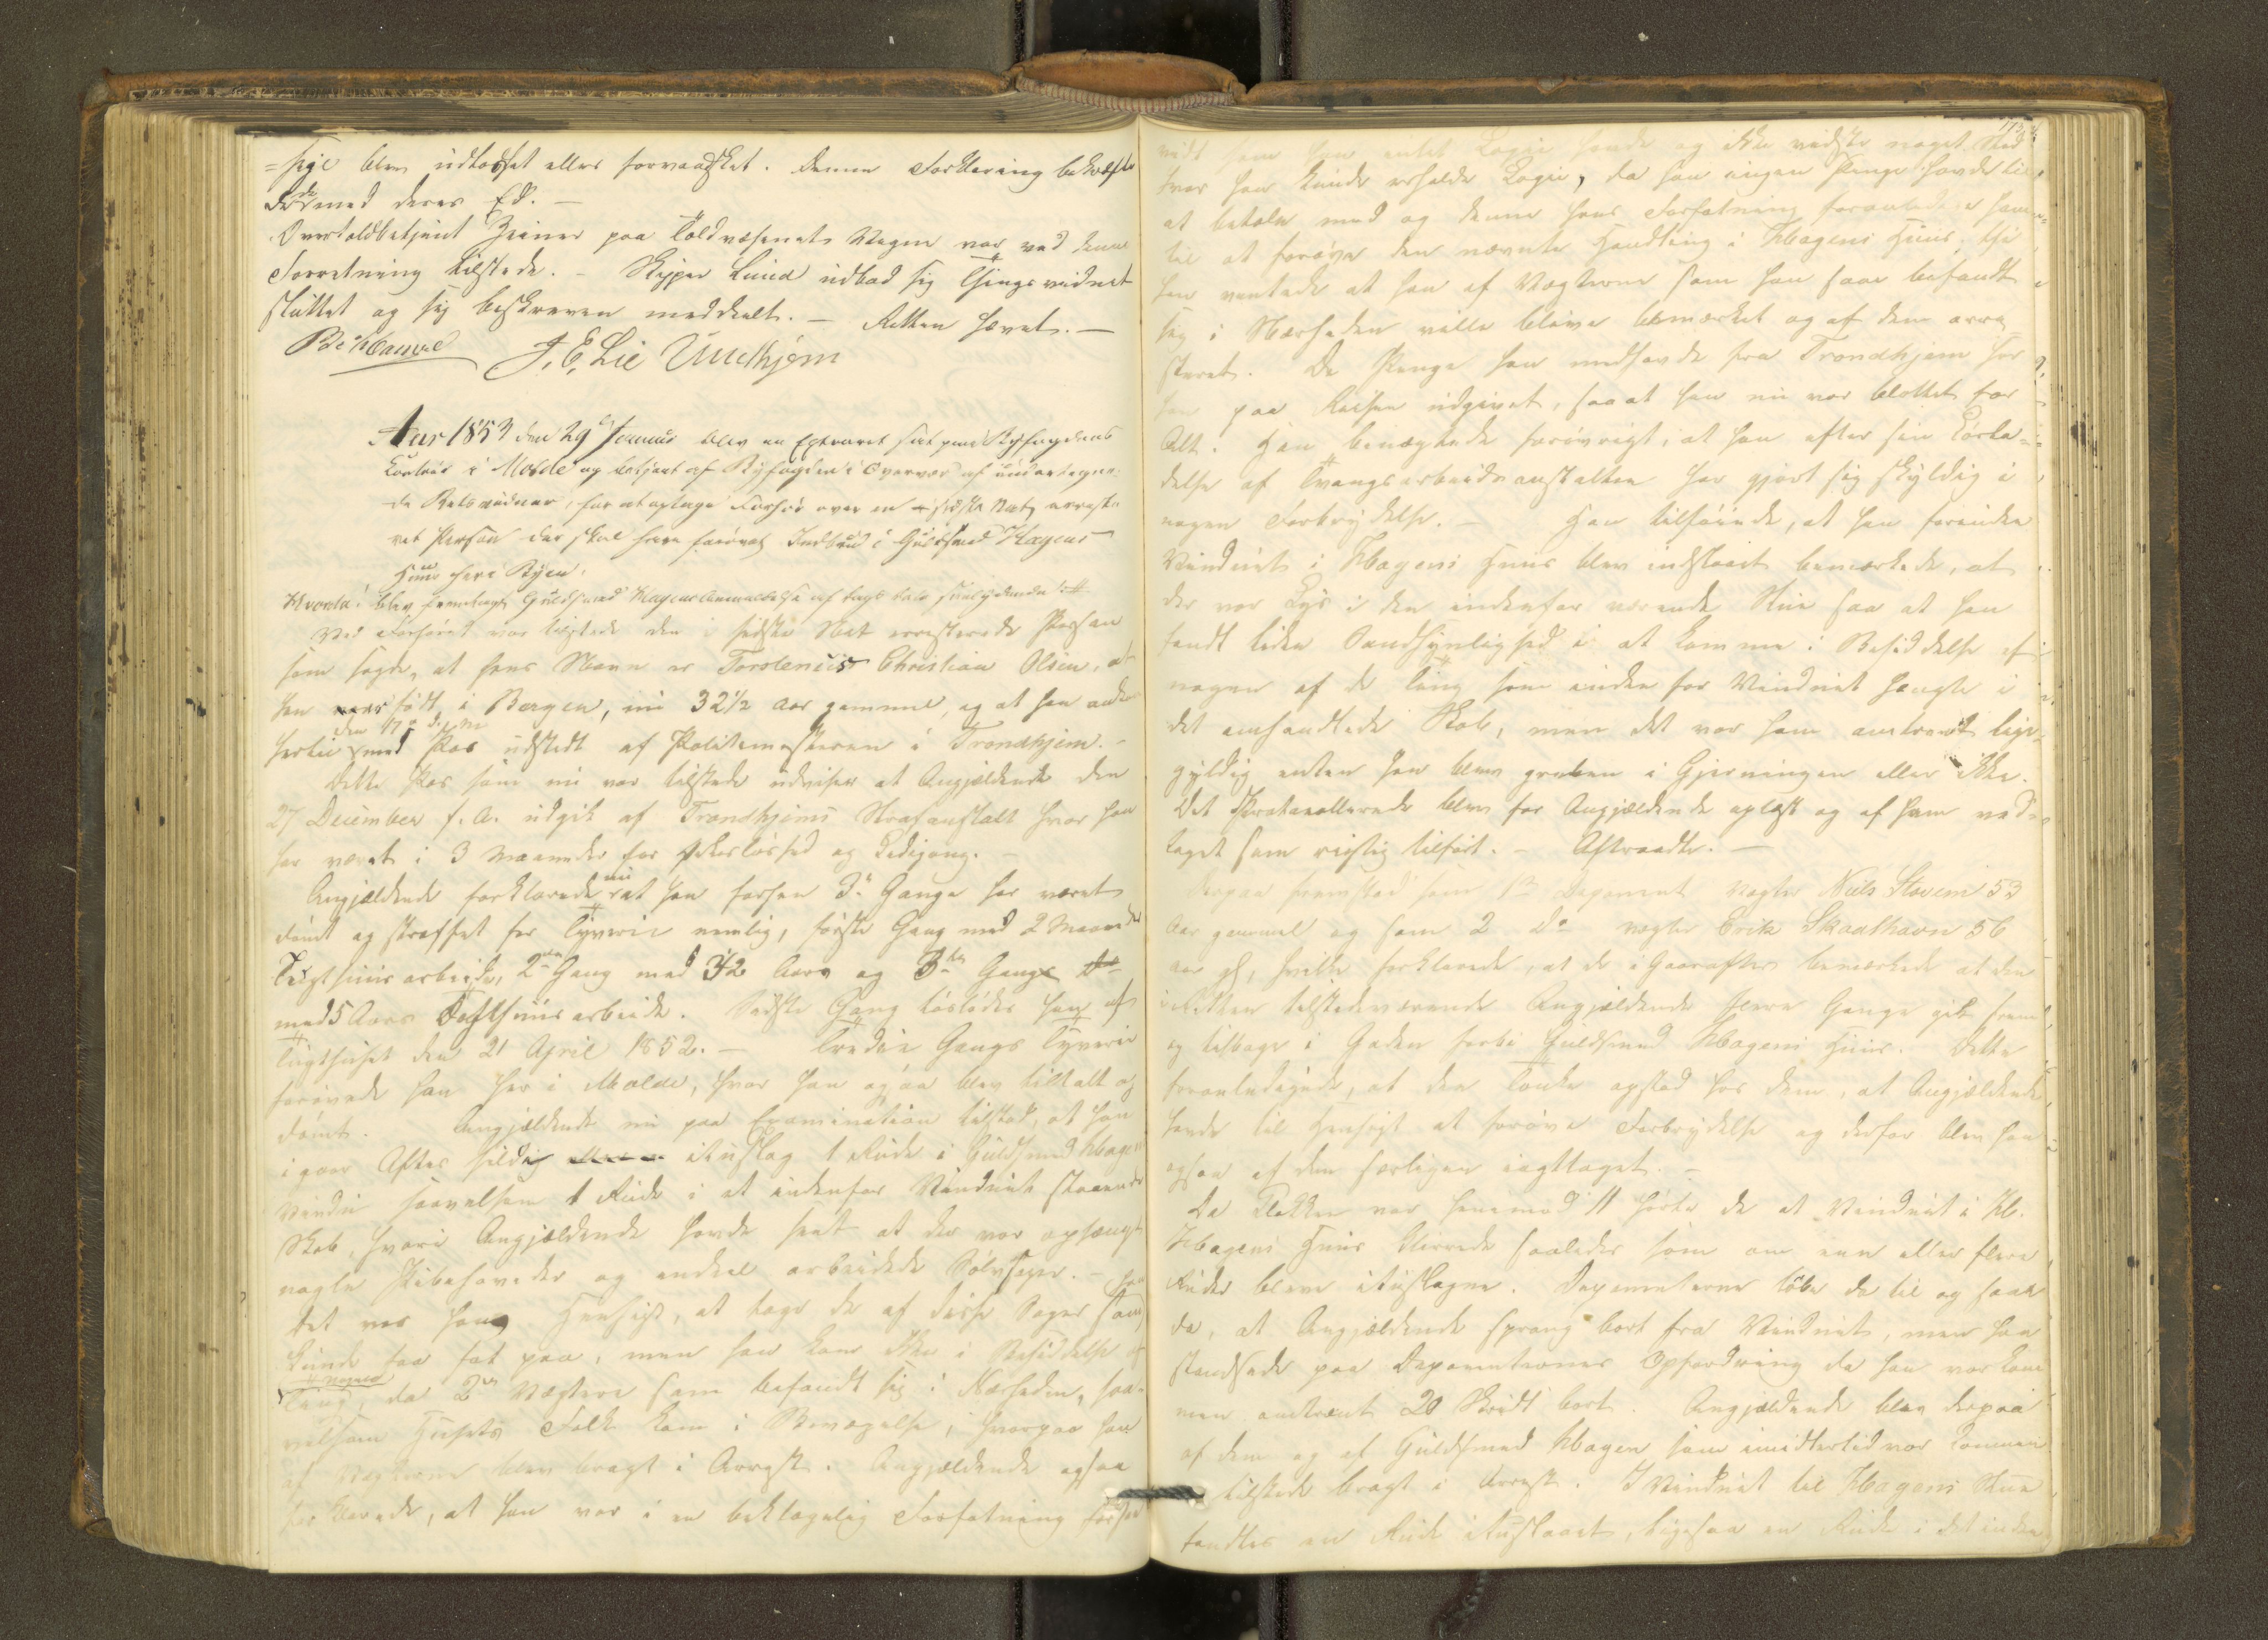 =syl blev udkastet eller forvandsket. Denne Forklaring bekræfte
de med deres Ed. –
Overtoldbetjent Zeiner paa Toldvæsenets Vegne var ved denne
Forretning tilstede. – Skipper Lund udbad sig Thingsvidnet
sluttet og sig beskreven meddeelt. – Retten hævet. –
J. E. Lie
Aar 1853 den 29 Januar blev en Extraret sat paa Byfogdens
Contoir i Molde og betjent af Byfogden i Overvær af undertegne
de Retsvidner, for at optage Forhør over en sidste Nat arreste
ret Person der skal have forøvet Indbrud i Guldsmed Hagens
Huus her i Byen.
Hvorda! blev fremlagt Guldsmed Hagens Anmeldelse af Dags Dato saalydende :#
Ved Forhøret var tilstede den i sidste Nat arresterede Person
som sagde, at hans Navn er Torstenius Christian Olsen, at
han er født i Bergen, nu 32½ Aar gammel, og at han ankom
hertil den 17 d. M. med Pas udstedt af Politimesteren i Trondhjem. –
Dette Pas som nu var tilstede udviser at Angjældende den
27 December f. A. udgik af Trondhjems Strafanstalt hvor han
har været i 3 Maaneder for Løsløshed og Ledigang. –
Angjældende forklarede nu at han forhen 3de Gange har været
dømt og straffet for Tyverie nemlig, første Gang med 2 Maaneders
Tugthuusarbeide, 2den Gang med 3½ Aars og 3die Gang
med 5 Aars Tugthuusarbeide. Sidste Gang løslodes han af
Tugthuset den 21 April 1852. – Tredie Gangs Tyverie
forøvede han her i Molde, hvor han og'aa blev tiltalt og
dømt. Angjældende nu paa Examination tilstod, at han
i gaar Aftes sildig ituslag 1 Rude i Guldsmed Hagens
Vindu saavelsom 1 Rude i et indenfor Vinduet staaende
Skab, hvori Angjældende havde seet at der var ophængt
nogle Pibehoveder og endeel arbeidede Sølvsager. –
Det var hans Hensigt, at tage de af disse Sager som han
kunde faa fat paa, men han kom ikke i Besiddelse af
nogen Ting, da 2de Vægtere som befandt sig i Nærheden, saa-
velsom Husets Folk kom i Bevægelse, hvorpaa han
af Vægterne blev bragt i Arrest. Angjældende ogsaa
forklarede, at han var i en beklagelig Forfatning forsaa
173.
vidt som han intet Logie havde og ikke vidste noget Sted
hvor han kunde erholde Logie, da han ingen Penge havde til
at betale med og denne hans Forfatning foranledede ham
til at forøve den nævnte Handling i Hagens Huus, thi
han ventede at han af Vægterne som han saae befandt
sig i Nærheden vilde blive bemærket og af dem arre-
steret. De Penge han medhavde fra Trondhjem har
han paa Reisen udgivet, saa at han nu var blottet for
Alt. Han benægtede forøvrigt, at han efter sin Løsla-
delse af Tvangsarbeidsanstalten har gjort sig skyldig i
nogen Forbrydelse. – Han tilføiede, at han forinden
Vinduet i Hagens Huus blev indslaaet bemærkede, at
der var Lys i den indenfor værende Stue saa at han
fandt liden Sandsynlighed i at komme i Besiddelse af
nogen af de Ting som inden for Vinduet hængte i
det omhandlede Skab, men det var ham omtrent lige-
gyldig enten han blev greben i Gjerningen eller ikke.
Det Protocollerede blev for Angjældende oplæst og af ham ved-
taget som rigtig tilført. – Aftraadte. –
Derpaa fremstod som 1ste Deponent Vægter Niels Stovem 53
Aar gammel og som 2 Do Vægter Erik Skaalhavn 56
Aar gl, hvilke forklarede, at de i Gaaraftes bemærkede at den
i Retten tilstedeværende Angjældende flere Gange gik frem
og tilbage i Gaden forbi Guldsmed Hagens Huus. Dette
foranledigede, at den Tanke opstod hos dem, at Angjældende
havde til Hensigt at forøve Forbrydelse og derfor blev han
ogsaa af dem særligen iagttaget. –
Da Klokken var henimod 11 hørte de at Vinduet i
Hagens Huus klirrede saaledes som om een eller flere
Ruder bleve ituslagne. Deponenterne løbe da til og saae
da, at Angjældende sprang bort fra Vinduet, men han
standsede paa Deponenternes Opfordring da han var kom
men omtrent 20 Skridt bort. Angjældende blev derpaa
af dem og af Guldsmed Hagen som imidlertid var kommen
tilstede bragt i Arrest. I Vinduet til Hagens Stue
fandtes en Rude ituslaaet, ligesaa en Rude i det inden